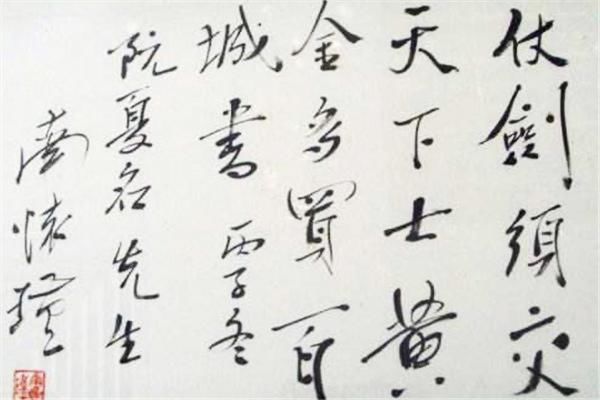 仗劍須交
天下士黃
金多買百
城書 丙子冬
阮夏 先生
南懷瑾